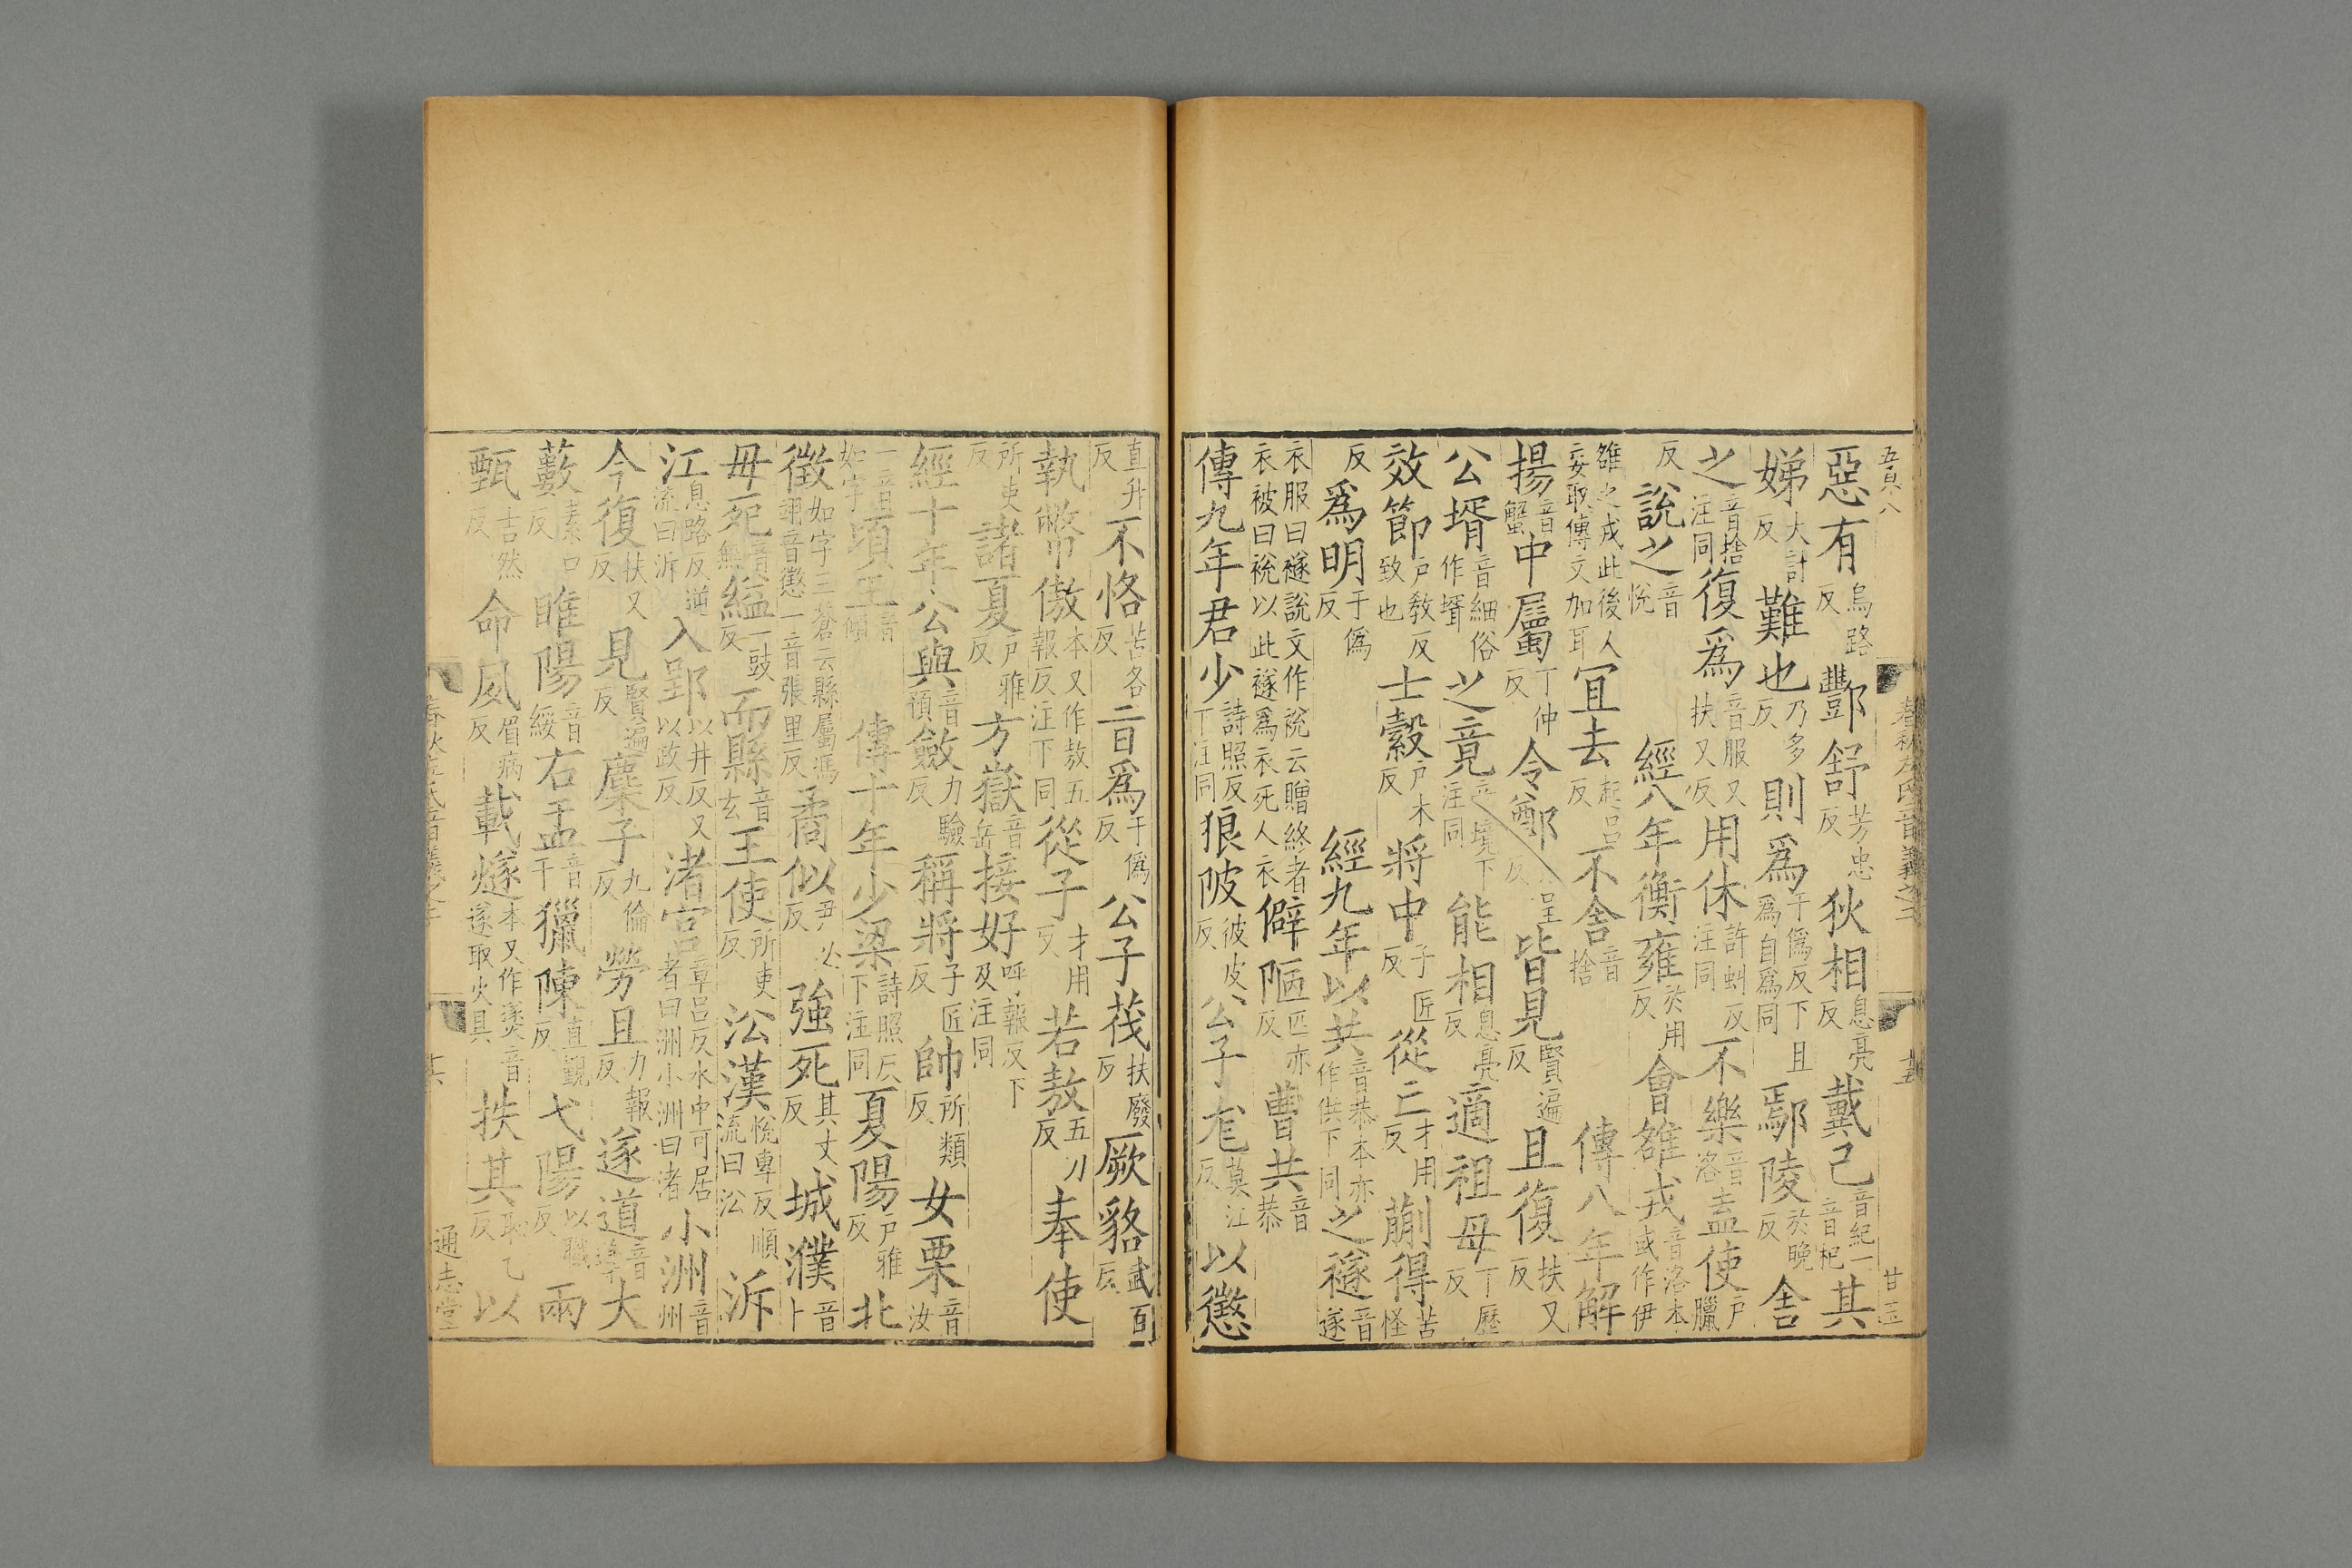 惡有烏路反酆舒芳忠反狄相息亮反戴己音紀一音杞其
娣大計反難也乃多反則爲于僞反下且爲自爲同鄢陵於晚反舍
之音捨注同復爲音服又扶又反用休許虯反注同不樂音洛盍使戶臘
反說之音悅 經八年衡雍於用反會雒戎音洛本或作伊
雒之戎此後人妄取傳文加耳宜去起呂反不舍音捨 傳八年解
揚音蟹中屬丁仲反令鄭力呈反皆見賢遍反且復扶又反
公壻音細俗作壻之竟音境下注同能相息亮反適祖母丁歷反
效節戶敎反致也士縠戶木反將中子匠反從亡才用反蒯得苦怪
反爲明于僞反 經九年以共音恭本亦作供下同之襚音遂
衣服曰襚說文作祱云贈終者衣被曰祱以此襚爲衣死人衣僻陋匹亦反曹共音恭
傳九年君少詩照反下注同狼陂彼皮反公子尨莫江反以懲
直升反不恪苦各反二日爲于僞反公子茷扶廢反厥貉武百反
執幣傲本又作敖五報反注下同從子才用反若敖五刀反奉使
所吏反諸夏戶雅反方嶽音岳接好呼報反下及注同
經十年公與音預斂力驗反稱將子匠反帥所類反女栗音汝
一音如字頃王音傾 傳十年少梁詩照反下注同夏陽戶雅反北
徵如字三蒼云縣屬馮翊音懲一音張里反矞似尹必反強死其丈反城濮音卜
毋死音無縊一豉反而縣音玄王使所吏反沿漢悅專反順流曰沿泝
江息路反逆流曰泝入郢以井反又以政反渚宮章呂反水中可居者曰洲小洲曰渚小洲音州
今復扶又反見賢遍反麇子九倫反勞且力報反遂道音導大
藪素口反睢陽音綏右盂音于獵陳直覲反弋陽以職反兩
甄吉然反命夙眉病反載燧本又作㸂音遂取火具抶其恥乙反以
通志堂